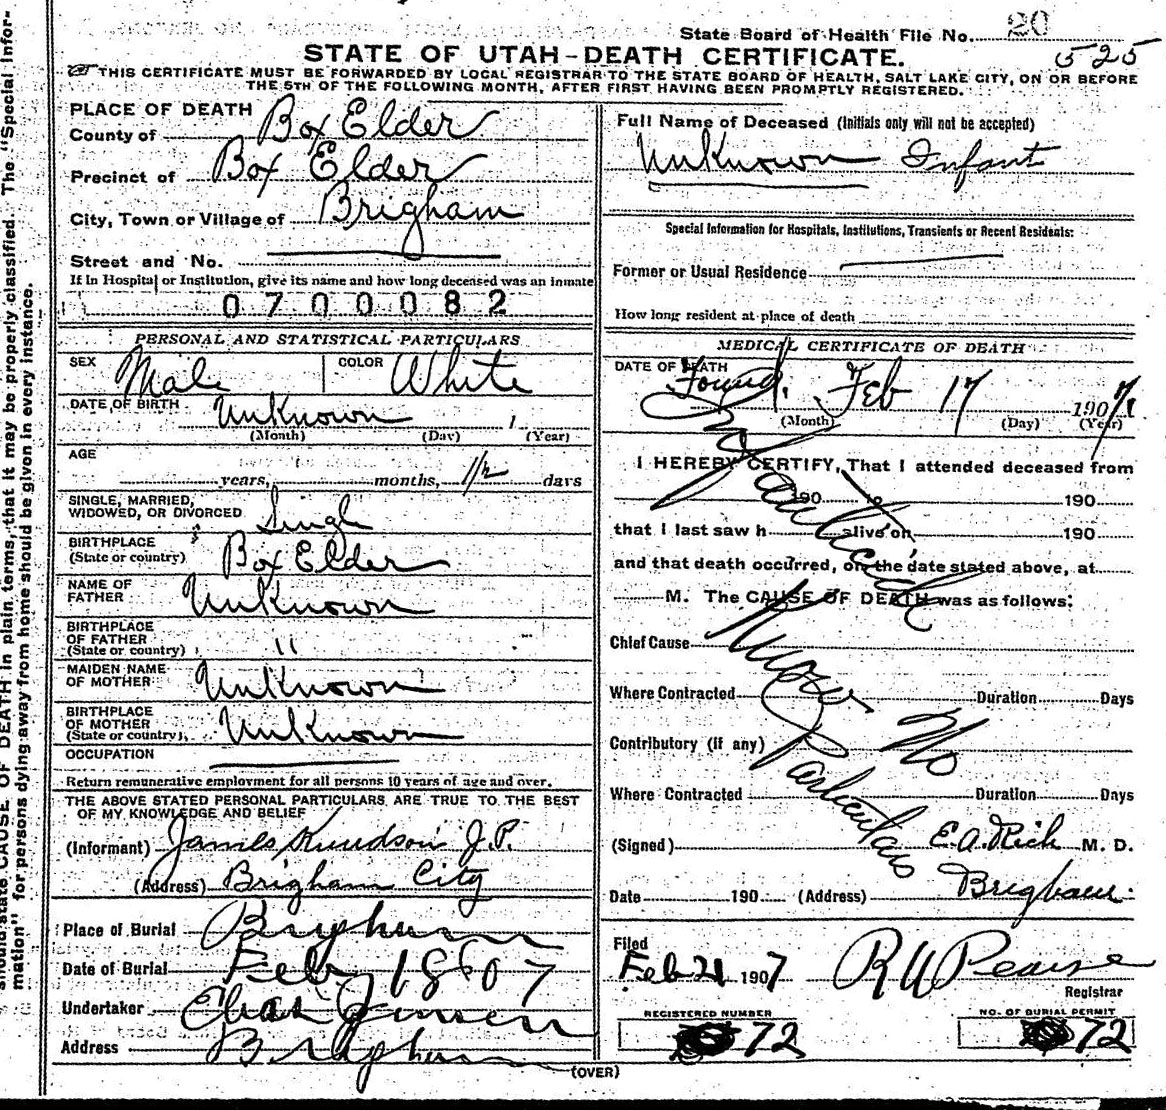 State Board of Health File No. 20
525
STATE OF UTAH-DEATH CERTIFICATE.
THIS CERTIFICATE MUST BE FORWARDED BY LOCAL REGISTRAR TO THE STATE BOARD OF HEALTH, SALT LAKE CITY, ON OR BEFORE
THE 5TH OF THE FOLLOWING MONTH, AFTER FIRST HAVING BEEN PROMPTLY REGISTERED.
PLACE OF DEATH
County of Box Elder
Precinct of Box Elder
City, Town or Village of Brigham
Street and No.
If in Hospital or Institution, give its name and how long deceased was an inmate
0700082
PERSONAL AND STATISTICAL PARTICULARS
SEX Male COLOR White
DATE OF BIRTH Unknown
(Month) (Day) (Year)
AGE
years, months, 1/2 days
SINGLE, MARRIED,
WIDOWED, OR DIVORCED Single
BIRTHPLACE
(State or country) Box Elder
NAME OF
FATHER Unknown
BIRTHPLACE
OF FATHER
(State or country) "
MAIDEN NAME
OF MOTHER Unknown
BIRTHPLACE
OF MOTHER
(State or country) Unknown
OCCUPATION
Return remunerative employment for all persons 10 years of age and over.
THE ABOVE STATED PERSONAL PARTICULARS ARE TRUE TO THE BEST
OF MY KNOWLEDGE AND BELIEF
(Informant) James Knudson J.P.
(Address) Brigham City
Place of Burial Brigham
Date of Burial Feb 18 07
Undertaker Chas Jensen
Address Brigham
Full Name of Deceased (Initials only will not be accepted)
Unknown Infant
Special Information for Hospitals, Institutions, Transients or Recent Residents:
Former or Usual Residence
How long resident at place of death
MEDICAL CERTIFICATE OF DEATH
DATE OF DEATH
Found. Feb 17 1907
(Month) (Day) (Year)
I HEREBY CERTIFY, That I attended deceased from
190 to 190
that I last saw h alive on 190
and that death occurred, on the date stated above, at
M. The CAUSE OF DEATH was as follows:
Chief Cause
Where Contracted Duration Days
Contributory (if any) No
Where Contracted Duration Days
Particulars
(Signed) E.A. Rich M. D.
Date 190 (Address) Brigham
Filed
Feb 21 1907 R W Pearse
Registrar
REGISTERED NUMBER
72
NO. OF BURIAL PERMIT
72
(OVER)
should state CAUSE OF DEATH in plain terms, that it may be properly classified. The "Special Infor-
mation" for persons dying away from home should be given in every instance.